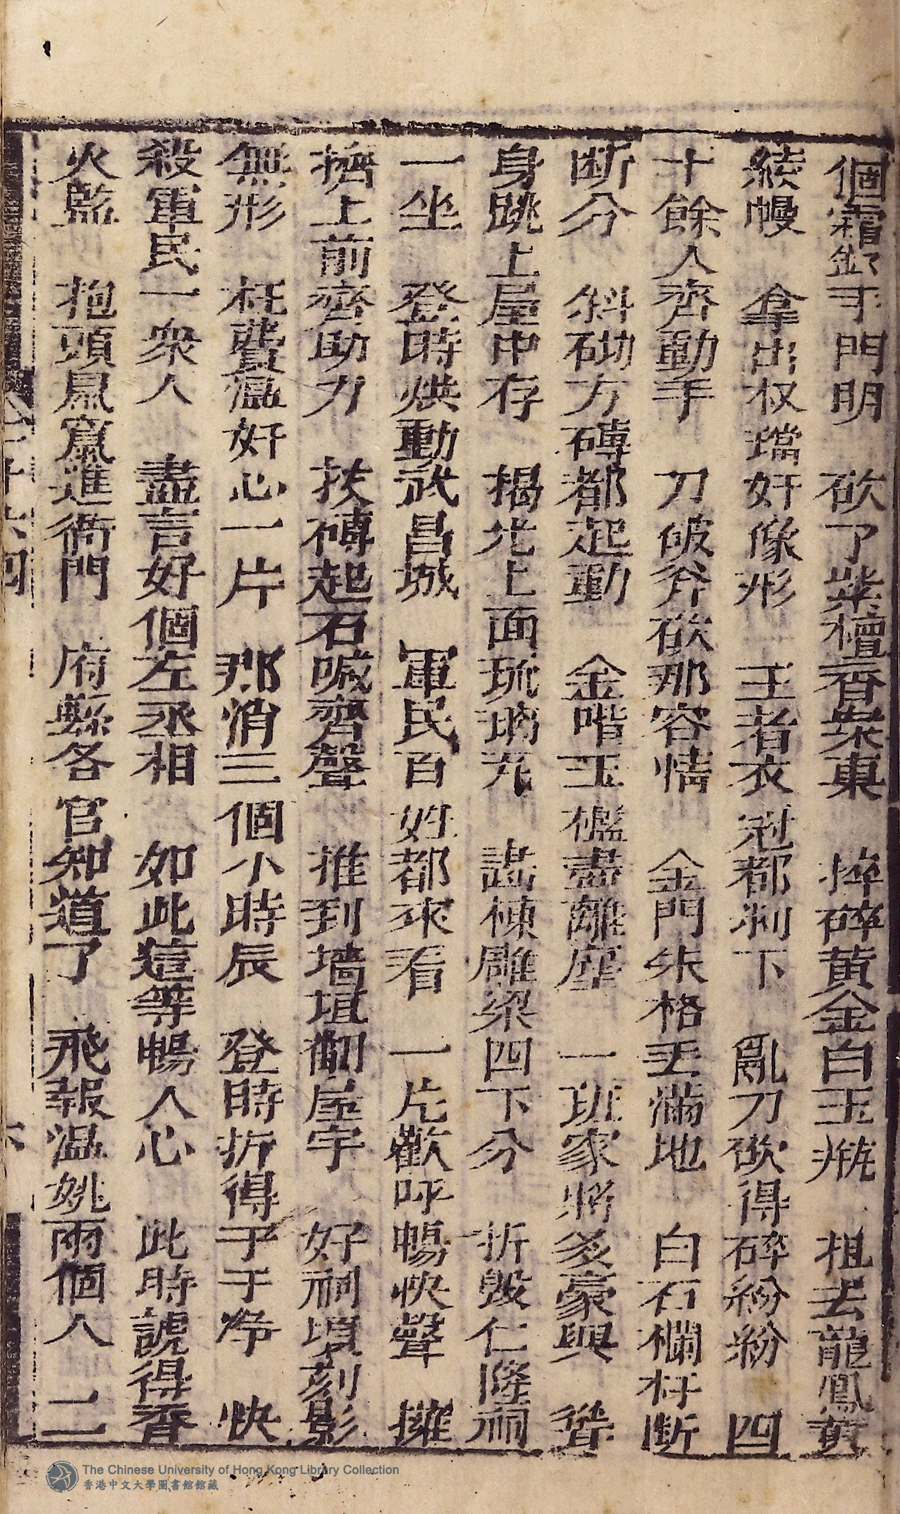 個霜鋒手門明　砍了紫檀香案東　摔碎黄金白玉瓶　扯去龍鳳剪
綾幔　拿出权璫奸像形　王者衣冠都剥下　亂刀砍得碎紛紛　四
十餘人齊動手　刀破斧砍那容情　金門朱格丟滿地　白石欄杆断
断分　斜砌方磚都起動　金堦玉檻盡離座　一班家將多豪興　聳
身跳上屋中存　揭光上面琉璃瓦　畵棟雕梁四下分　折毁仁隆祠
一坐　登時烘動武昌城　軍民百姓都來看　一片歡呼暢快聲　擁
擠上前齊助力　扶磚起石喊齊聲　推到墻垣翻屋宇　好祠頃刻影
無形　枉費溫奸心一片　那消三個小時辰　登時折得干干净　快
殺軍民一衆人　盡言好個左丞相　如此這等暢人心　此時諕得香
火監　抱頭鼠竄進衙門　府縣各官知道了　飛報溫姚兩個人　二
The Chinese University of Hong Kong Library Collection
香港中文大學圖書館館藏